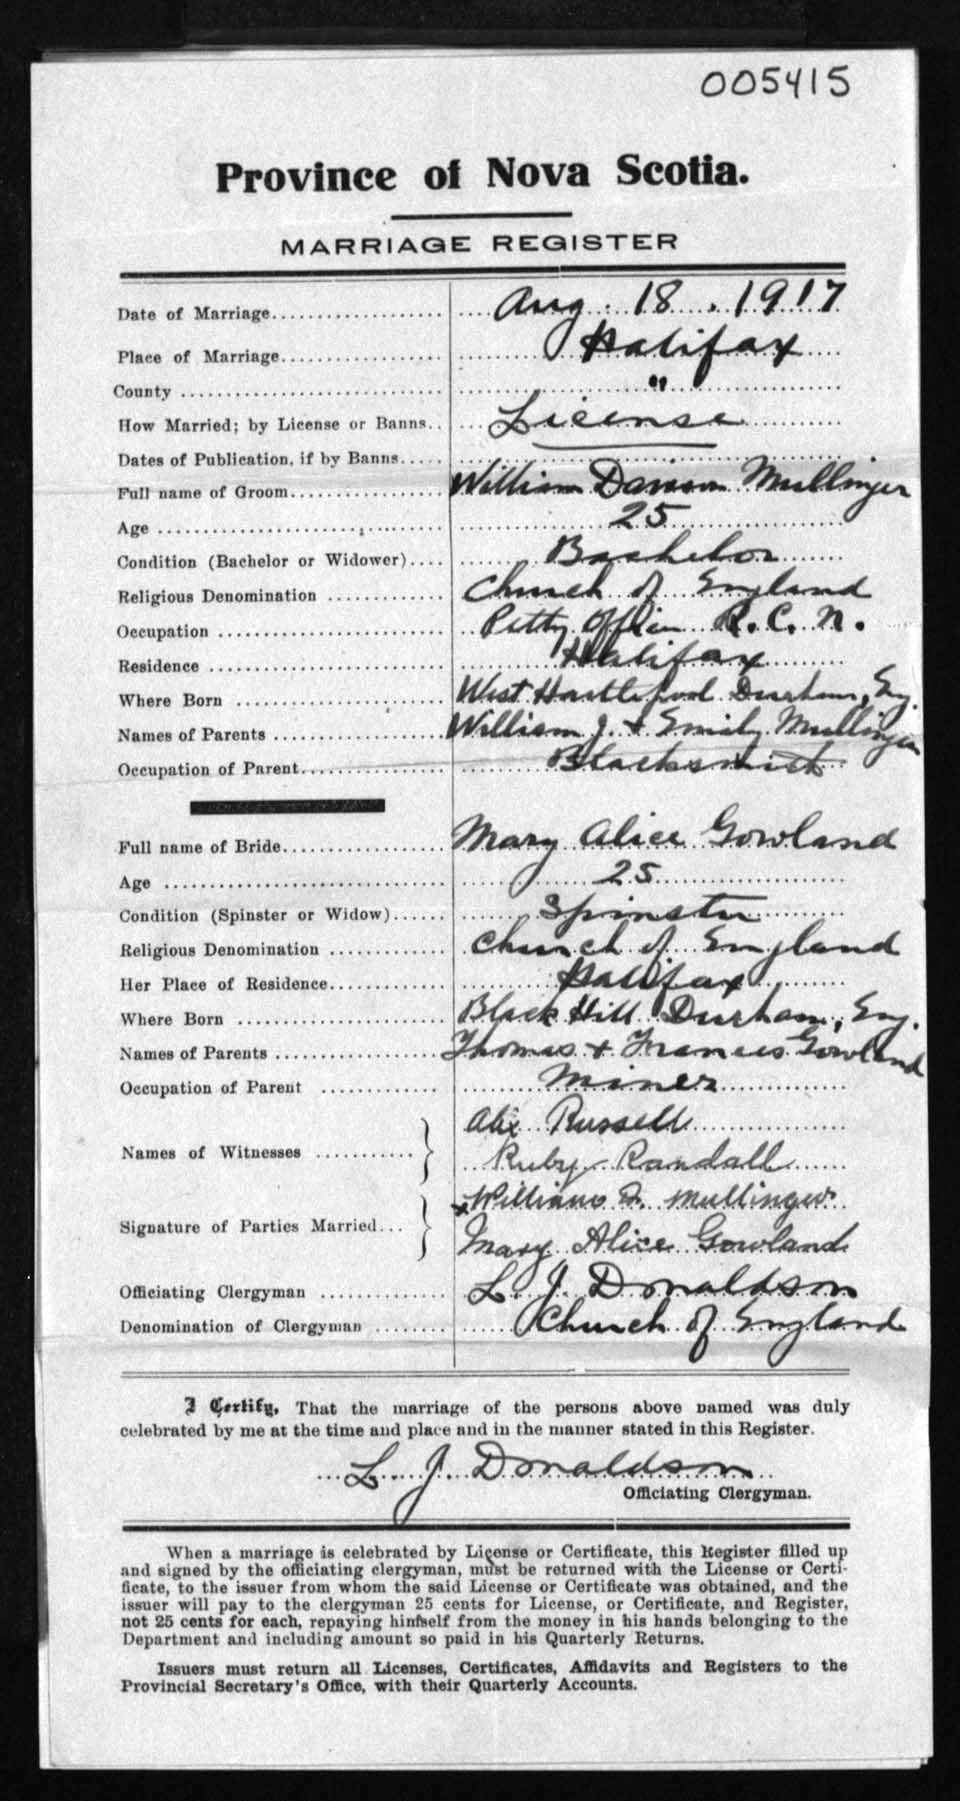 005415
Province of Nova Scotia.
MARRIAGE REGISTER
Date of Marriage Aug. 18, 1917
Place of Marriage Halifax
County "
How Married; by License or Banns License
Dates of Publication, if by Banns
Full name of Groom William Dawson Mullinger
Age 25
Condition (Bachelor or Widower) Bachelor
Religious Denomination Church of England
Occupation Petty Officer R.C.N.
Residence Halifax
Where Born West Hartlepool Durham, Eng.
Names of Parents William J. + Emily Mullinger
Occupation of Parent Blacksmith
Full name of Bride Mary Alice Gowland
Age 25
Condition (Spinster or Widow) Spinster
Religious Denomination Church of England
Her Place of Residence Halifax
Where Born Black Hill Durham, Eng.
Names of Parents Thomas + Frances Gowland
Occupation of Parent Miner
Names of Witnesses Alex Russell
Ruby Randall
Signature of Parties Married x William D. Mullinger
Mary Alice Gowland
Officiating Clergyman L. J. Donaldson
Denomination of Clergyman Church of England
I Certify, That the marriage of the persons above named was duly
celebrated by me at the time and place and in the manner stated in this Register.
L. J. Donaldson
Officiating Clergyman.
When a marriage is celebrated by License or Certificate, this Register filled up
and signed by the officiating clergyman, must be returned with the License or Certi-
ficate, to the issuer from whom the said License or Certificate was obtained, and the
issuer will pay to the clergyman 25 cents for License, or Certificate, and Register,
not 25 cents for each, repaying himself from the money in his hands belonging to the
Department and including amount so paid in his Quarterly Returns.
Issuers must return all Licenses, Certificates, Affidavits and Registers to the
Provincial Secretary's Office, with their Quarterly Accounts.